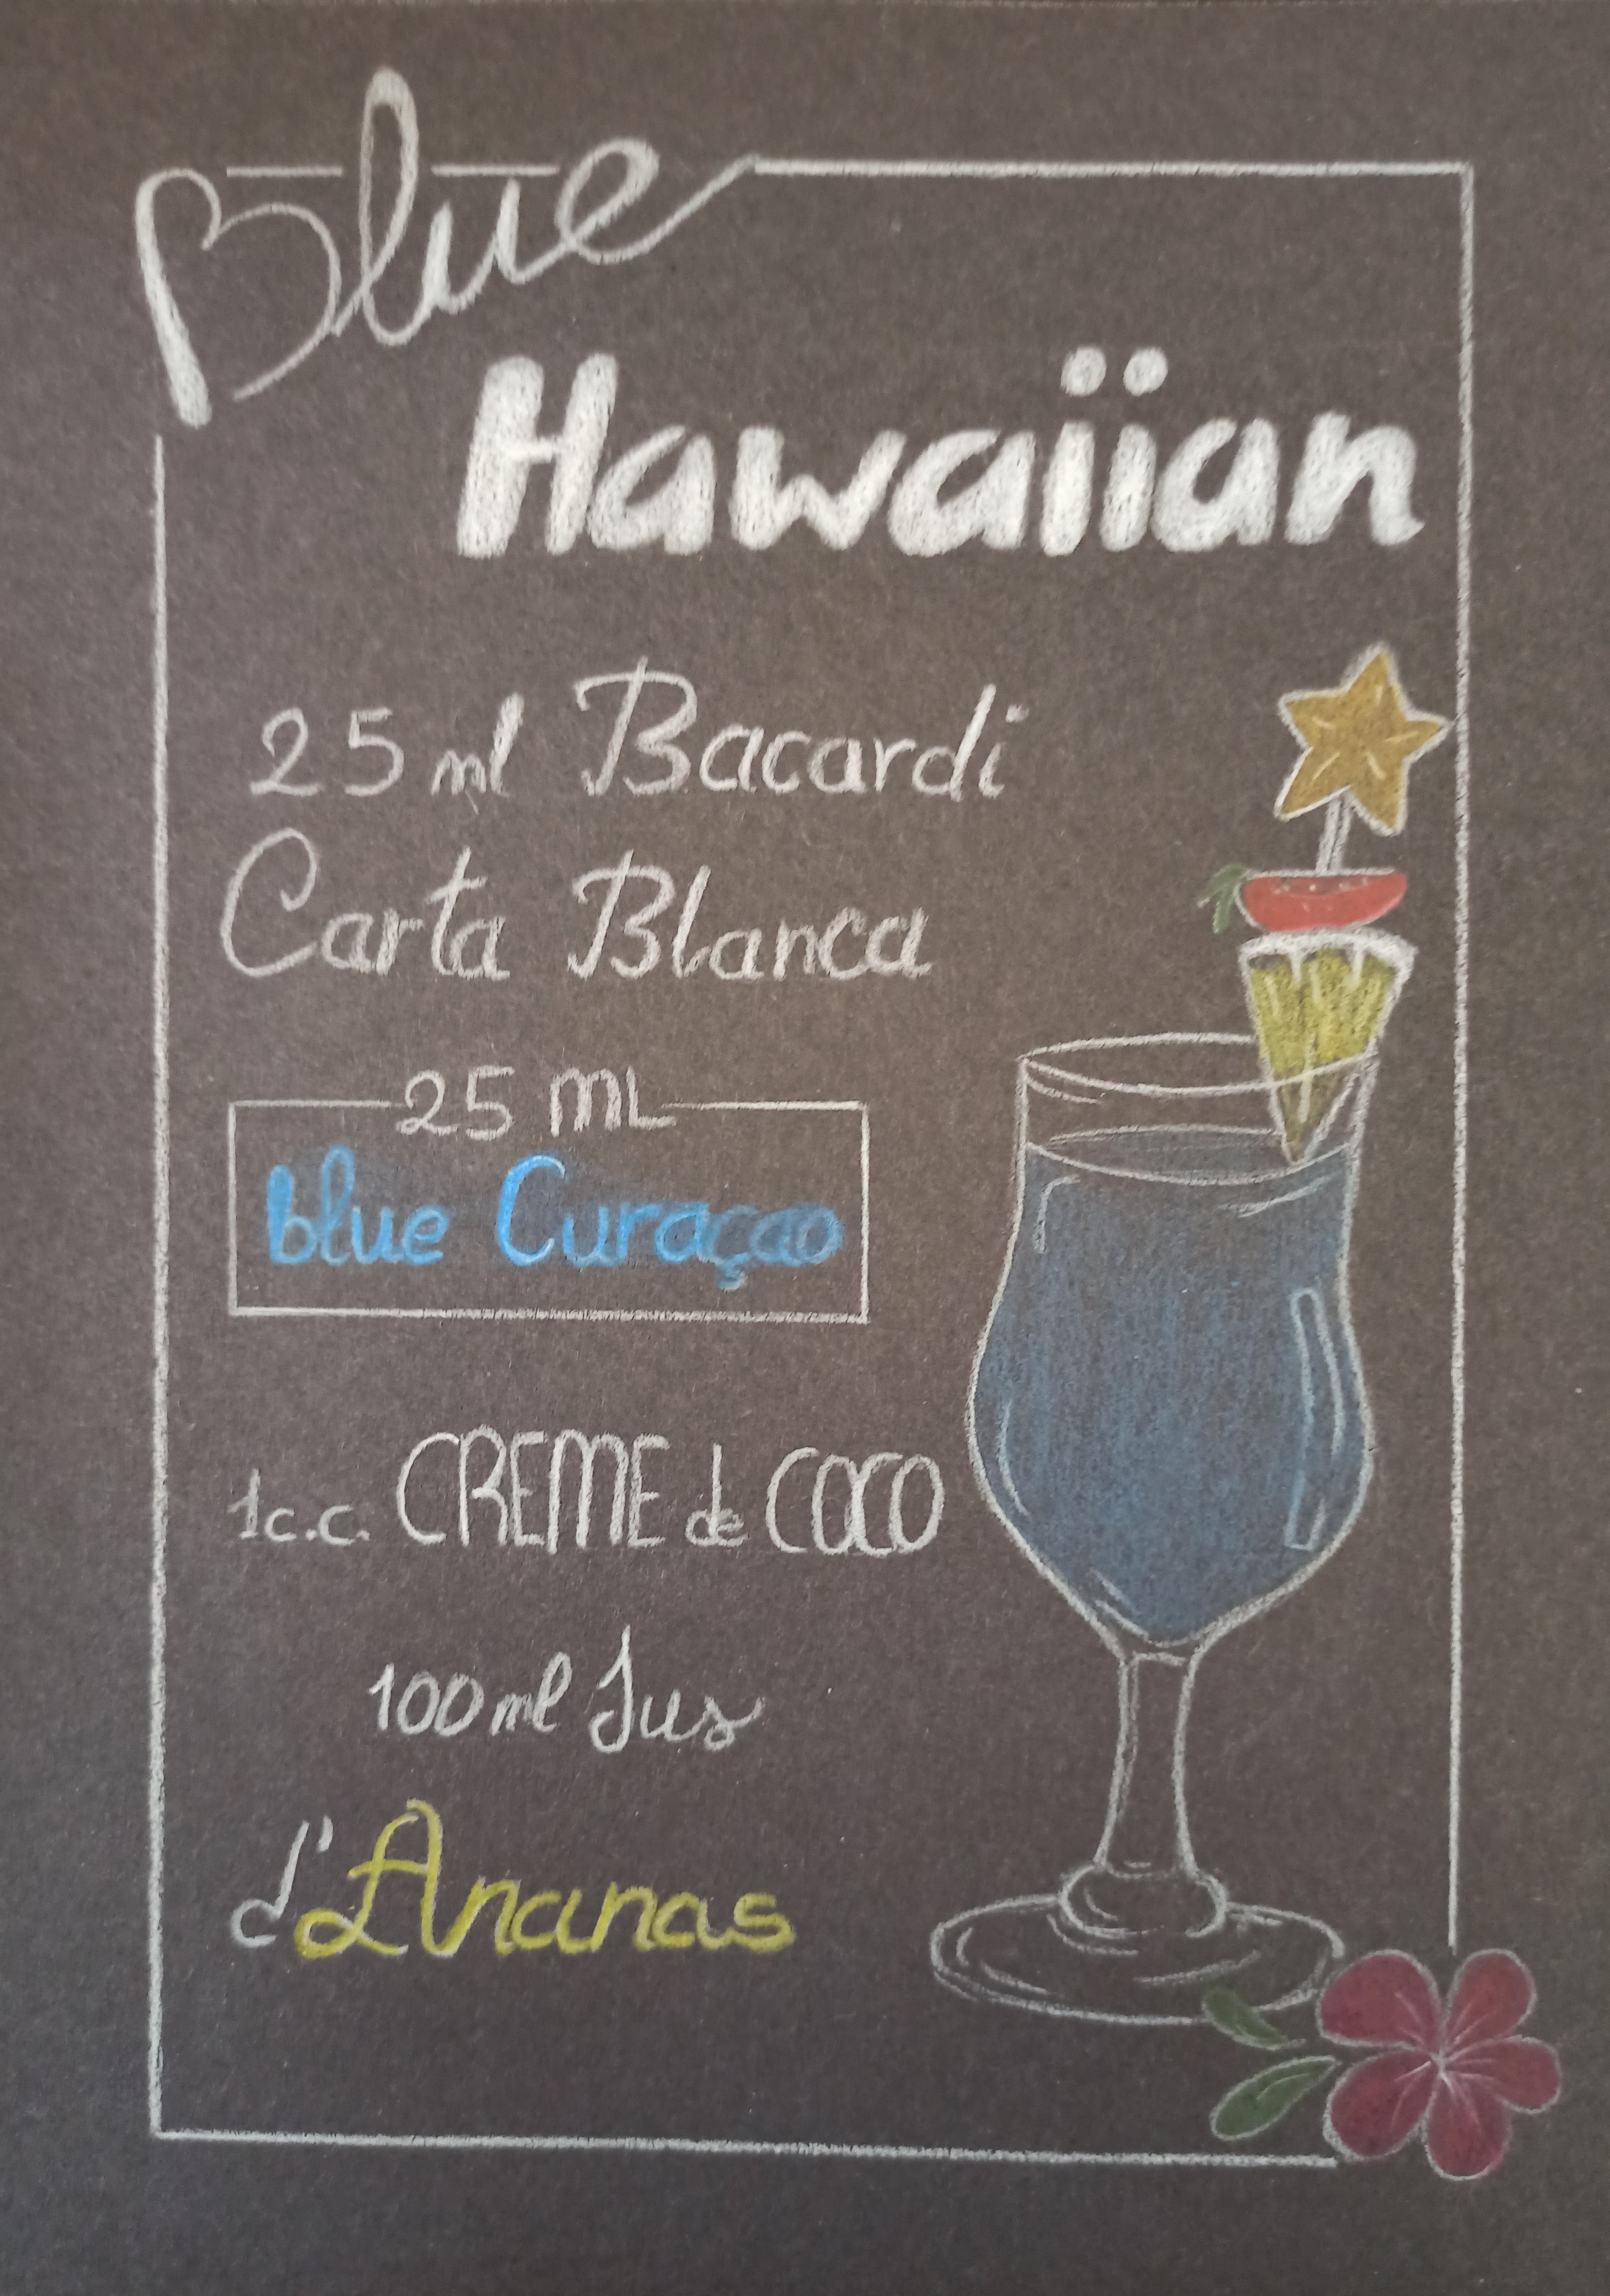 Blue
Hawaiian
25 ml Bacardi
Carta Blanca
25 ML
blue Curaçao
1c.c. CREME de COCO
100 ml Jus
d'Ananas